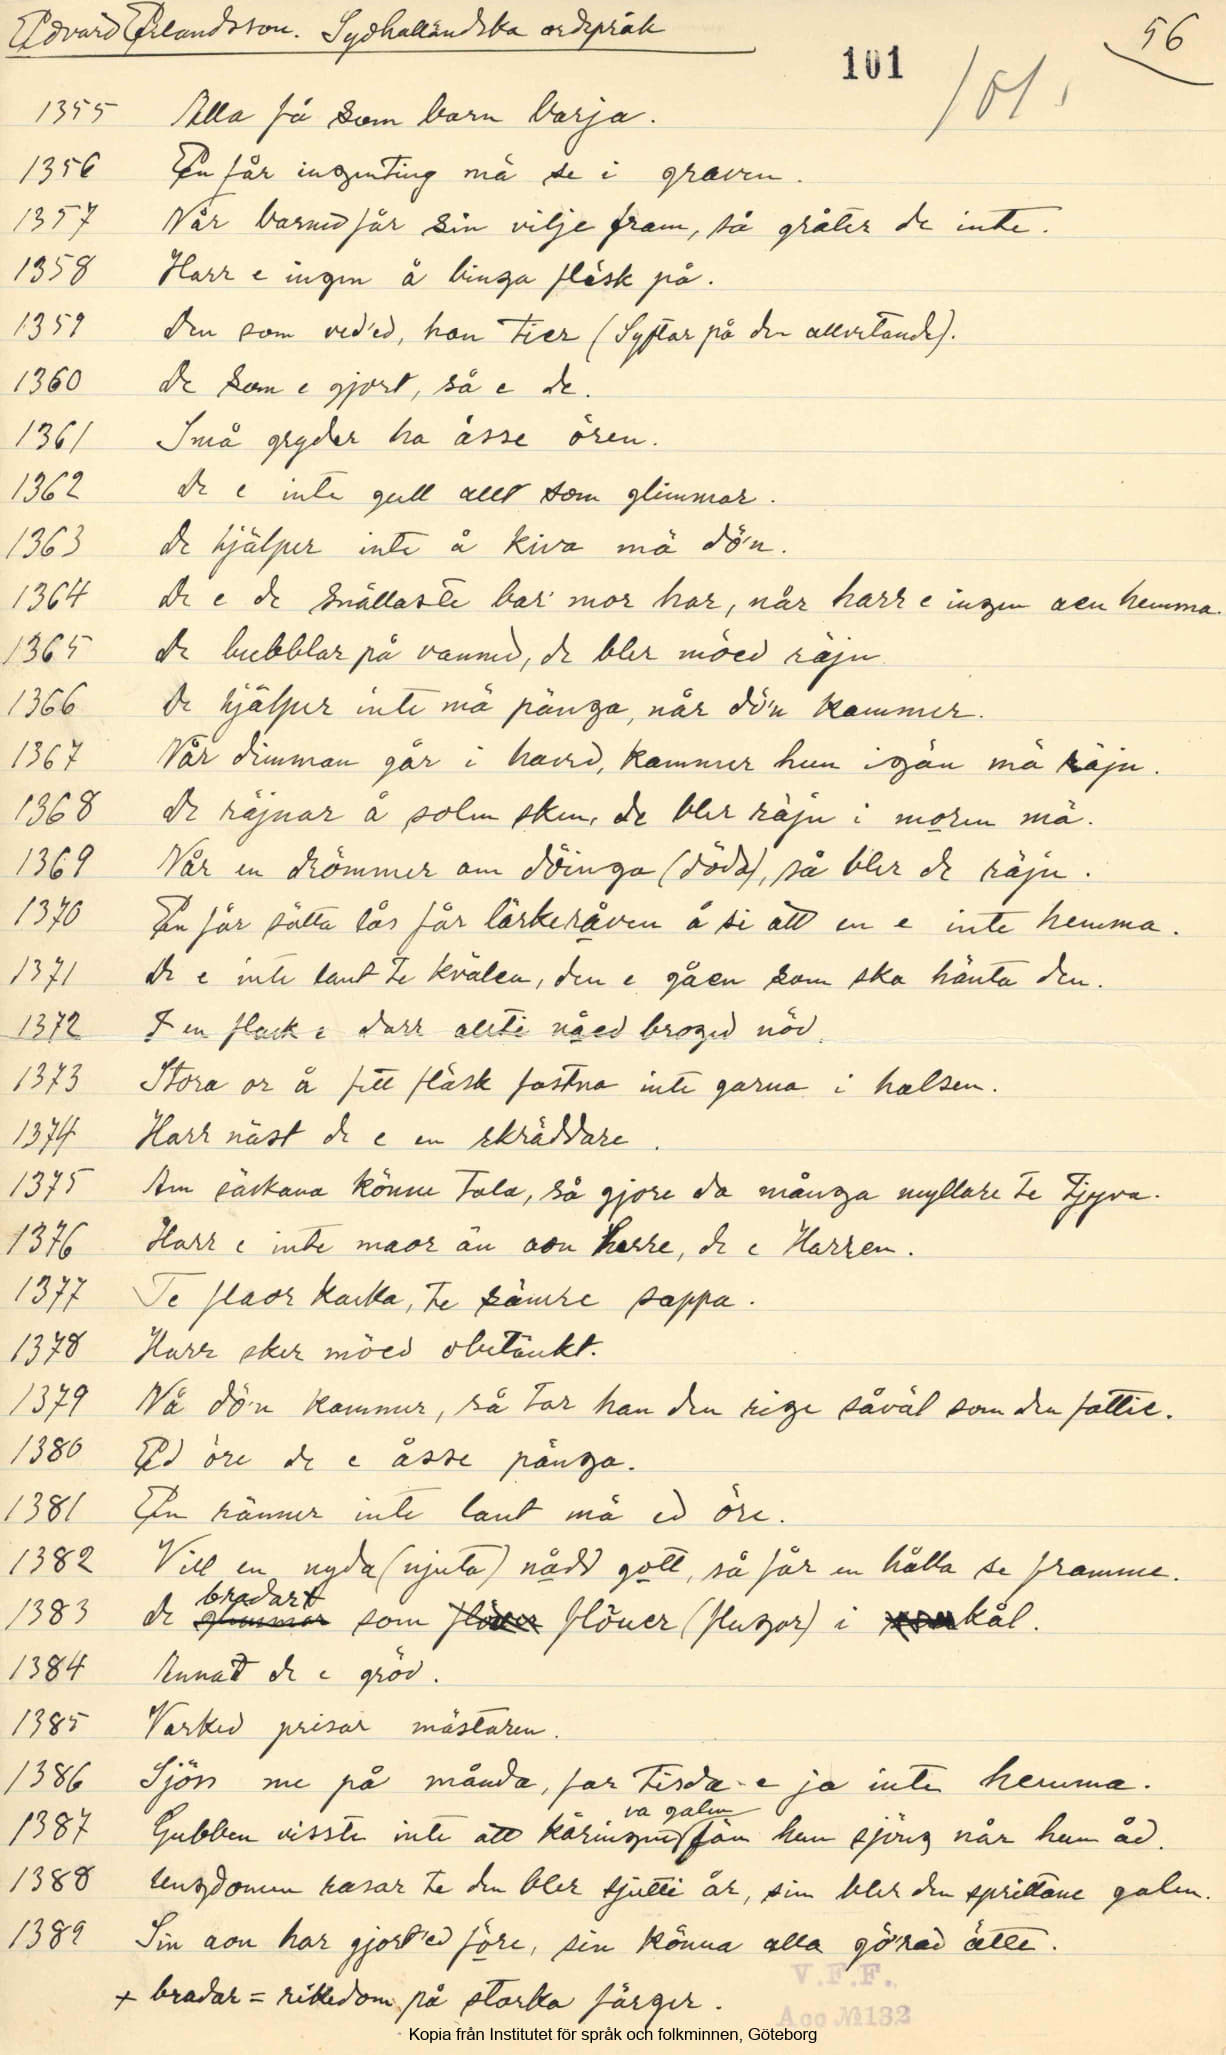 Edvard Erlandsson. Sydhalländska ordspråk 56
101 101.
1355 Alla få som barn barja.
1356 En får ingenting mä se i graven.
1357 Når barned får sin vilje fram, så gråter de inte.
1358 Harr e ingen å binga fläsk på.
1359 Den som ved'ed, han tier (Syftar på den allvetande).
1360 De som e gjort, så e de.
1361 Små gryder ha åsse ören.
1362 De e inte gull allt som glimmar.
1363 De hjälper inte å kiva mä dö'n.
1364 De e de snällaste bar' mor har, når harr e ingen aen hemma.
1365 De bubblar på vanned, de bler möed räjn
1366 De hjälper inte mä pänga, når dö'n kommer.
1367 Når dimman går i haved, kommer hun igän mä räjn.
1368 De räjnar å solen sken, de bler räjn i moren mä.
1369 Når en drömmer om döinga (döda), så bler de räjn.
1370 En får sätta lås får lärkeråven å si att en e inte hemma.
1371 De e inte lant te kvälen, den e gåen som ska hänta den.
1372 I en flock e darr allti nåed broged nöd.
1373 Stora or å fett fläsk fastna inte garna i halsen.
1374 Harr näst de e en skräddare.
1375 Am säckana könne tala, så gjore da många myllare te tjyva.
1376 Harr e inte maor än aon herre, de e Harren.
1377 Te flaor kacka, te sämre soppa.
1378 Harr sker möed obetänkt.
1379 Nå dö'n kommer, så tar han den rige såväl som den fattie.
1380 Ed öre de e åsse pänga.
1381 En ränner inte lant mä ed öre.
1382 Vill en nyda (njuta) nådd gott, så får en hålla se framme.
1383 de bradart som flöuer (flugor) i kål.
1384 Annat de e gröd.
1385 Varked prisar mästaren.
1386 Sjöss me på månda, far tisda e ja inte hemma.
1387 Gubben visste inte att käringen va galen fån hun sjöng når hun åd.
1388 Ungdomen rasar te den bler sjutti år, sin bler den sprittane galen.
1389 Sin aon har gjort'ed före, sin könna alla gö'rad ätte.
+ bradar = rikedom på starka färger.
V.F.F.
Acc № 132
Kopia från Institutet för språk och folkminnen, Göteborg